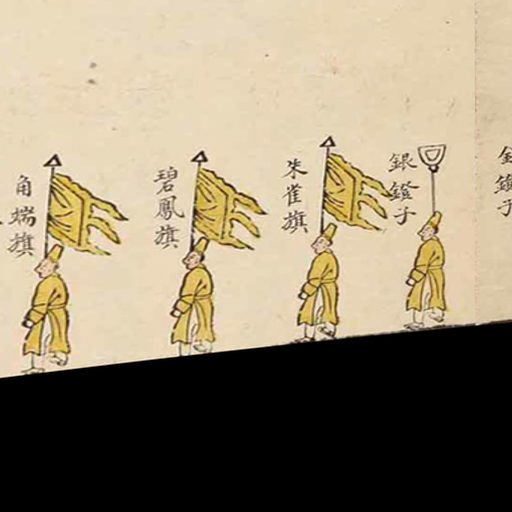 角端旗
碧鳳旗
朱雀旗
銀鐙子